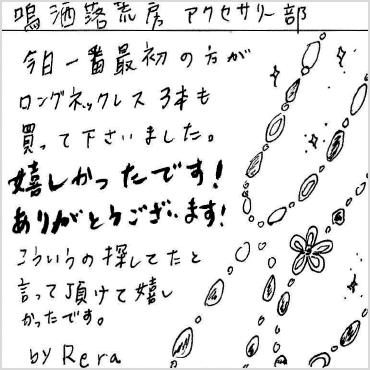 鳴洒落荒房 アクセサリー部
今日一番最初の方が
ロングネックレス3本も
買って下さいました。
嬉しかったです!
ありがとうございます!
こういうの探してたと
言って頂けて嬉し
かったです。
by Rera